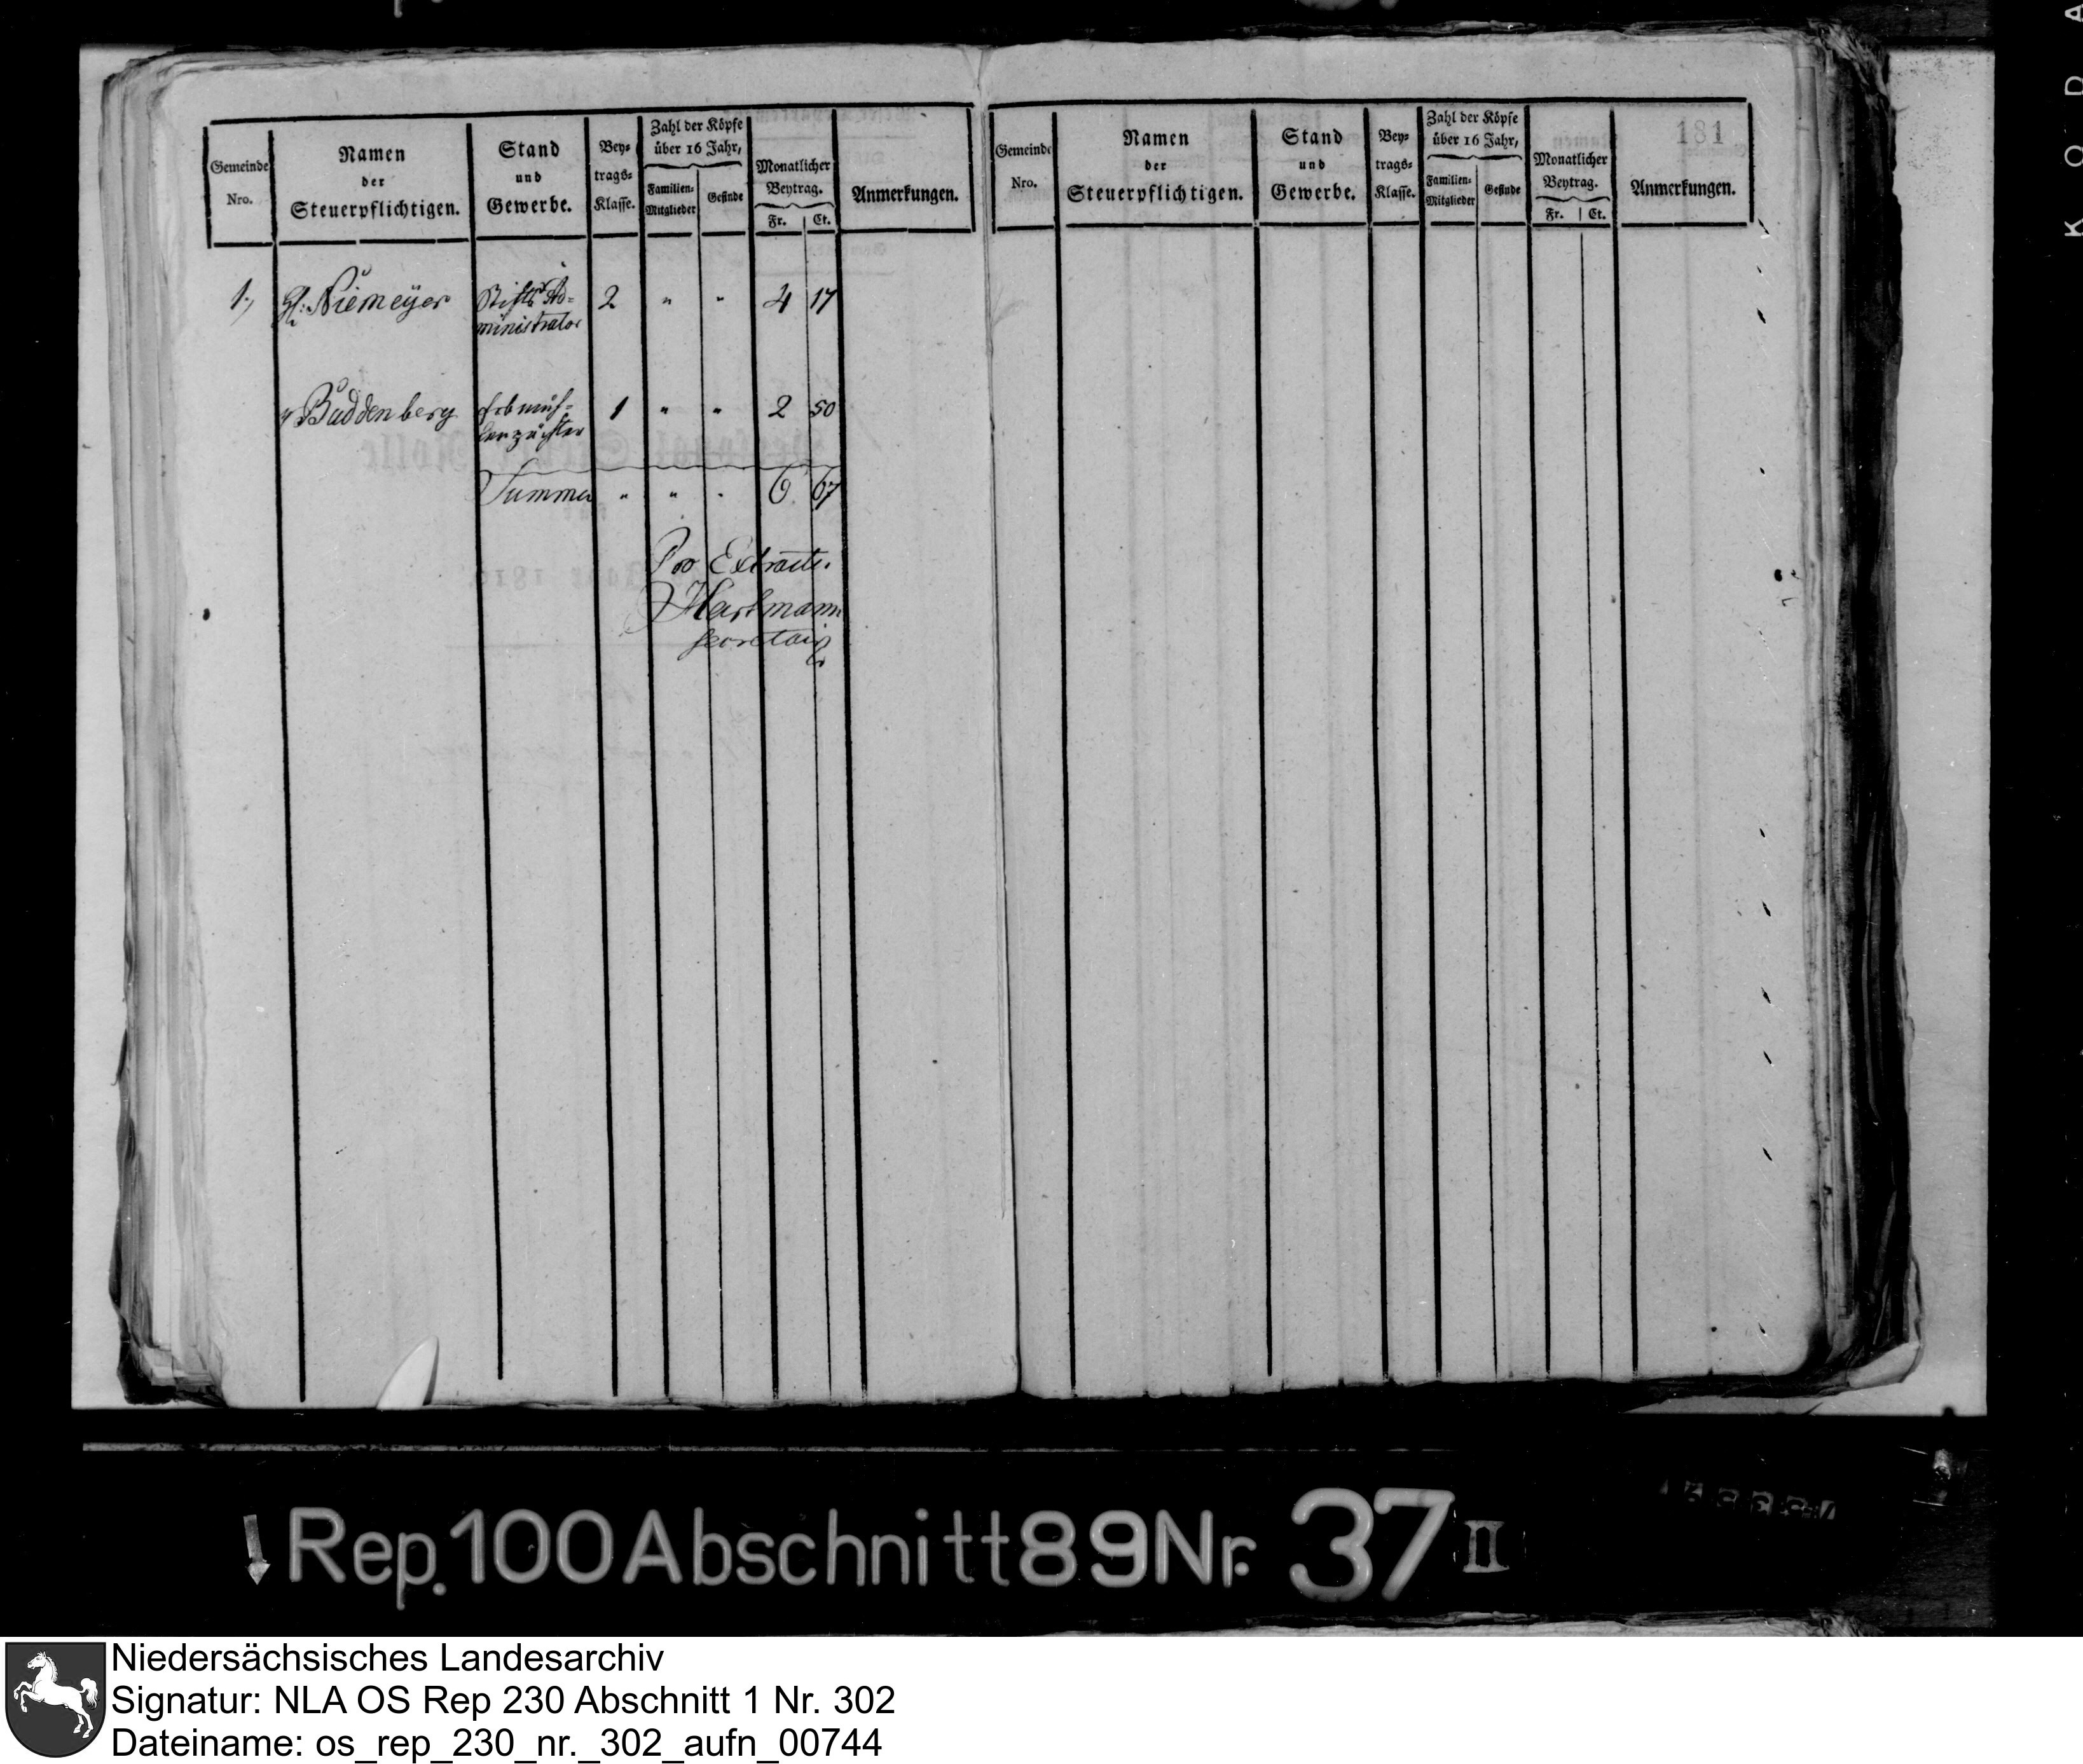 Gemeinde
Nro.
Namen
der
Steuerpflichtigen.
Stand
und
Gewerbe.
Bey-
trags-
Klasse.
Zahl der Köpfe
über 16 Jahr,
Familien-
Mitglieder
Gesinde
Monatlicher
Beytrag.
Fr. Ct.
Anmerkungen.
1., Niemeyer Stifts Ad- 2 " " 4 17
ministrator
Buddenberg 1 " " 2 50
Summa " " " 6. 67
Pro Extractu.
Hartmann
secretair
Gemeinde
Nro.
Namen
der
Steuerpflichtigen.
Stand
und
Gewerbe.
Bey-
trags-
Klasse.
Zahl der Köpfe
über 16 Jahr,
Familien-
Mitglieder
Gesinde
Monatlicher
Beytrag.
Fr. Ct.
181
Anmerkungen.
KODA
Rep. 100 Abschnitt 89 Nr. 37 II
Niedersächsisches Landesarchiv
Signatur: NLA OS Rep 230 Abschnitt 1 Nr. 302
Dateiname: os_rep_230_nr._302_aufn_00744